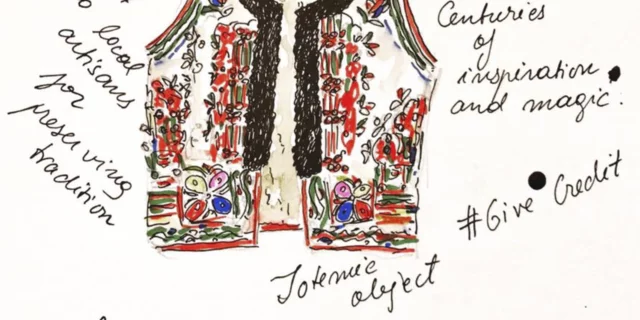 local
artisans
for
preserving
tradition
Centuries
of
inspiration
and magic.
#Give Credit
Totemic
object